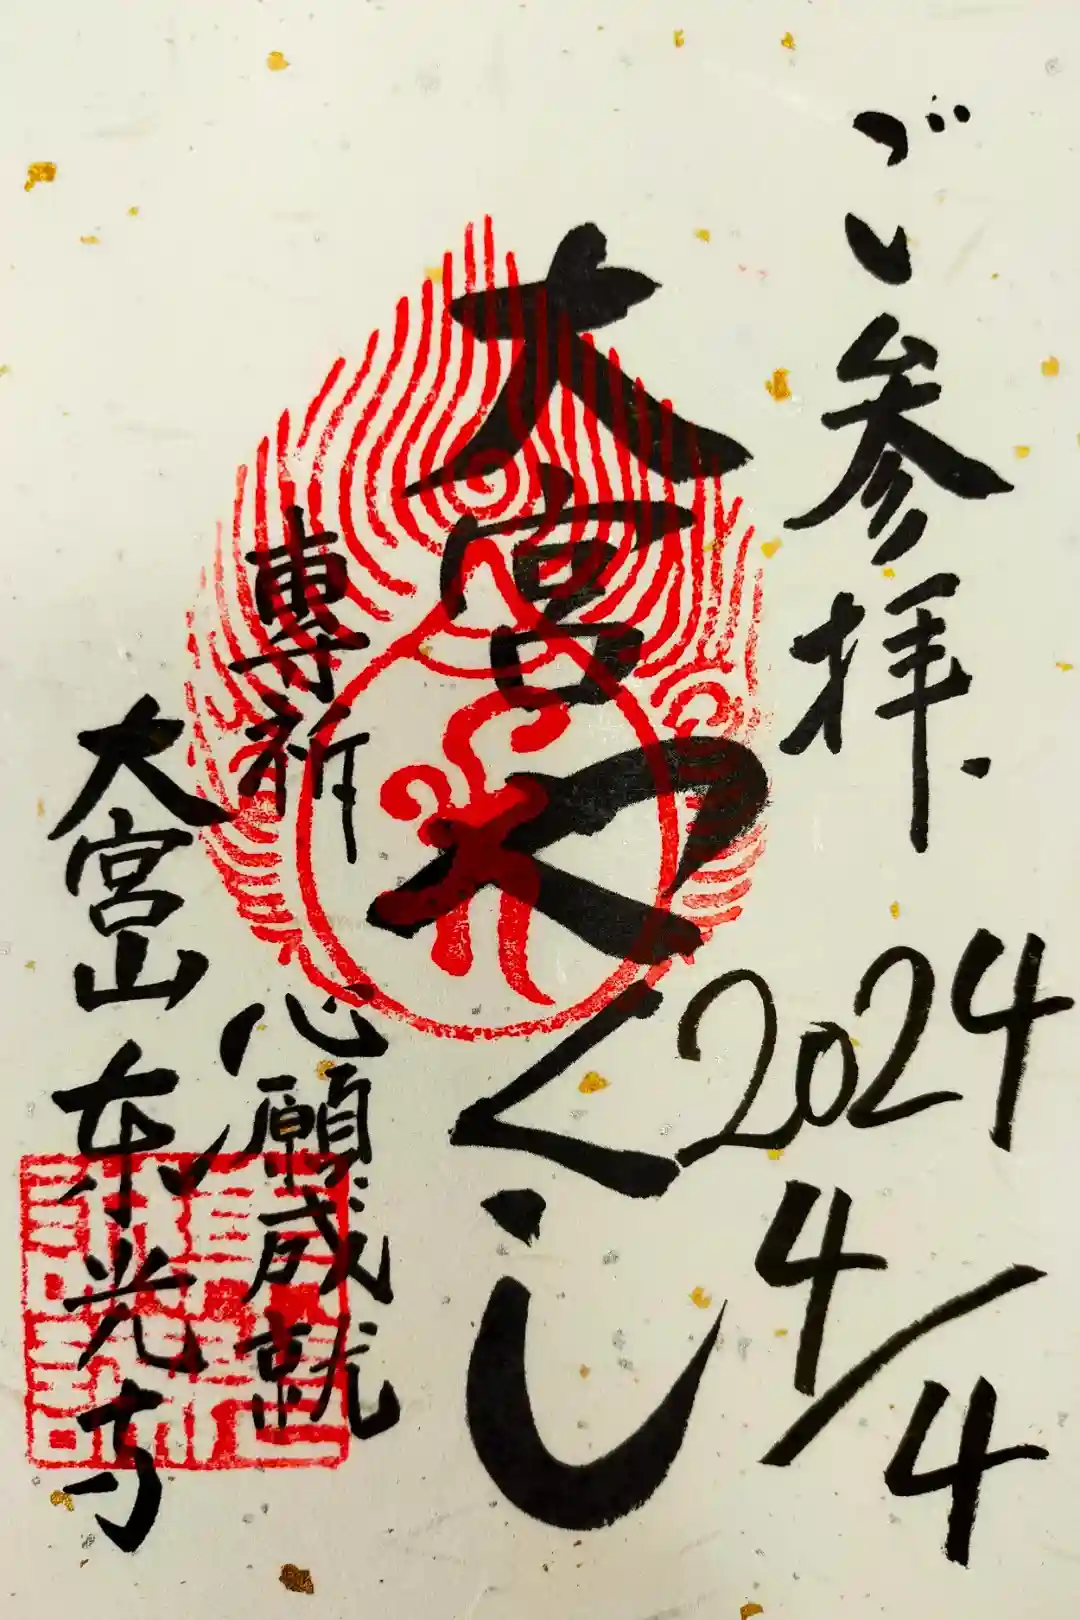 ご参拝.
2024
4/4
大宮やくし
專祈 心願成就
大宮山 東光寺